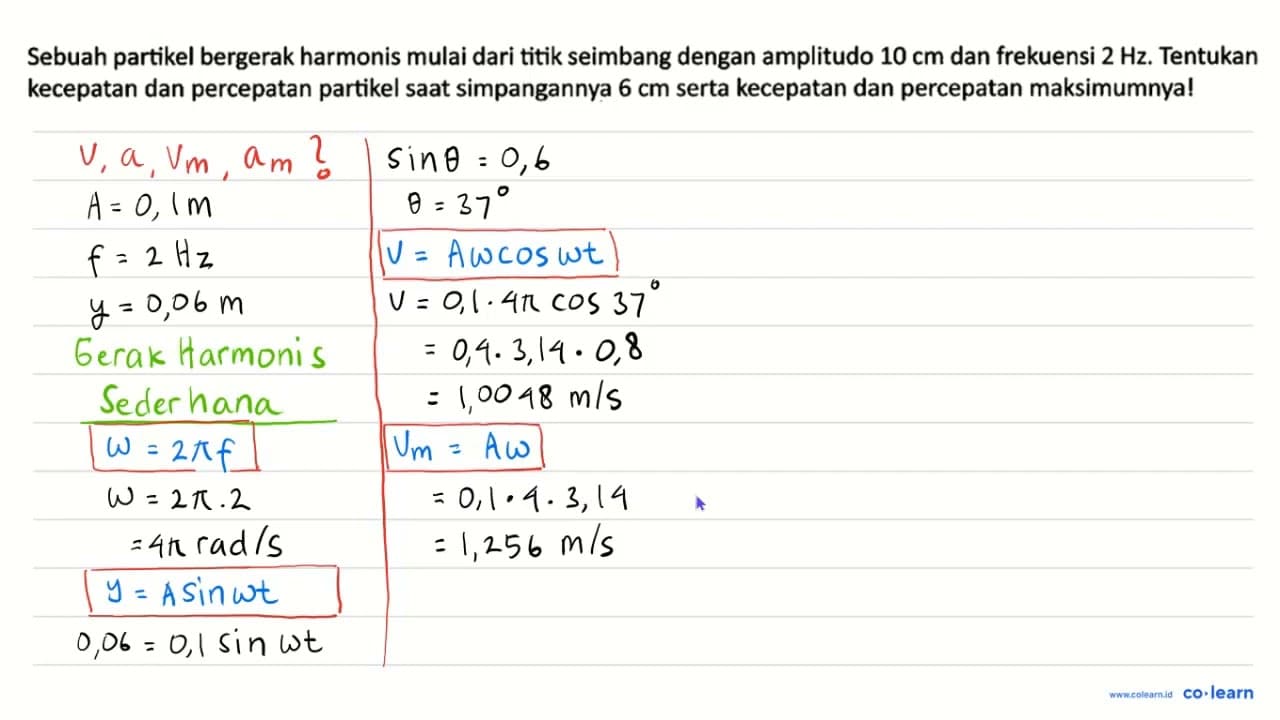 Sebuah partikel bergerak harmonis mulai dari titik seimbang dengan amplitudo 10 cm dan frekuensi 2 Hz. Tentukan
kecepatan dan percepatan partikel saat simpangannya 6 cm serta kecepatan dan percepatan maksimumnya!
v, a, Vm, am ?
A = 0,1 m
f = 2 Hz
y = 0,06 m
Gerak Harmonis
Sederhana
ω = 2πf
ω = 2π.2
= 4π rad/s
y = A sin ωt
0,06 = 0,1 sin ωt
sin θ = 0,6
θ = 37°
V = Aω cos ωt
V = 0,1 . 4π cos 37°
= 0,4 . 3,14 . 0,8
= 1,0048 m/s
Vm = Aω
= 0,1 . 4 . 3,14
= 1,256 m/s
www.colearn.id co·learn